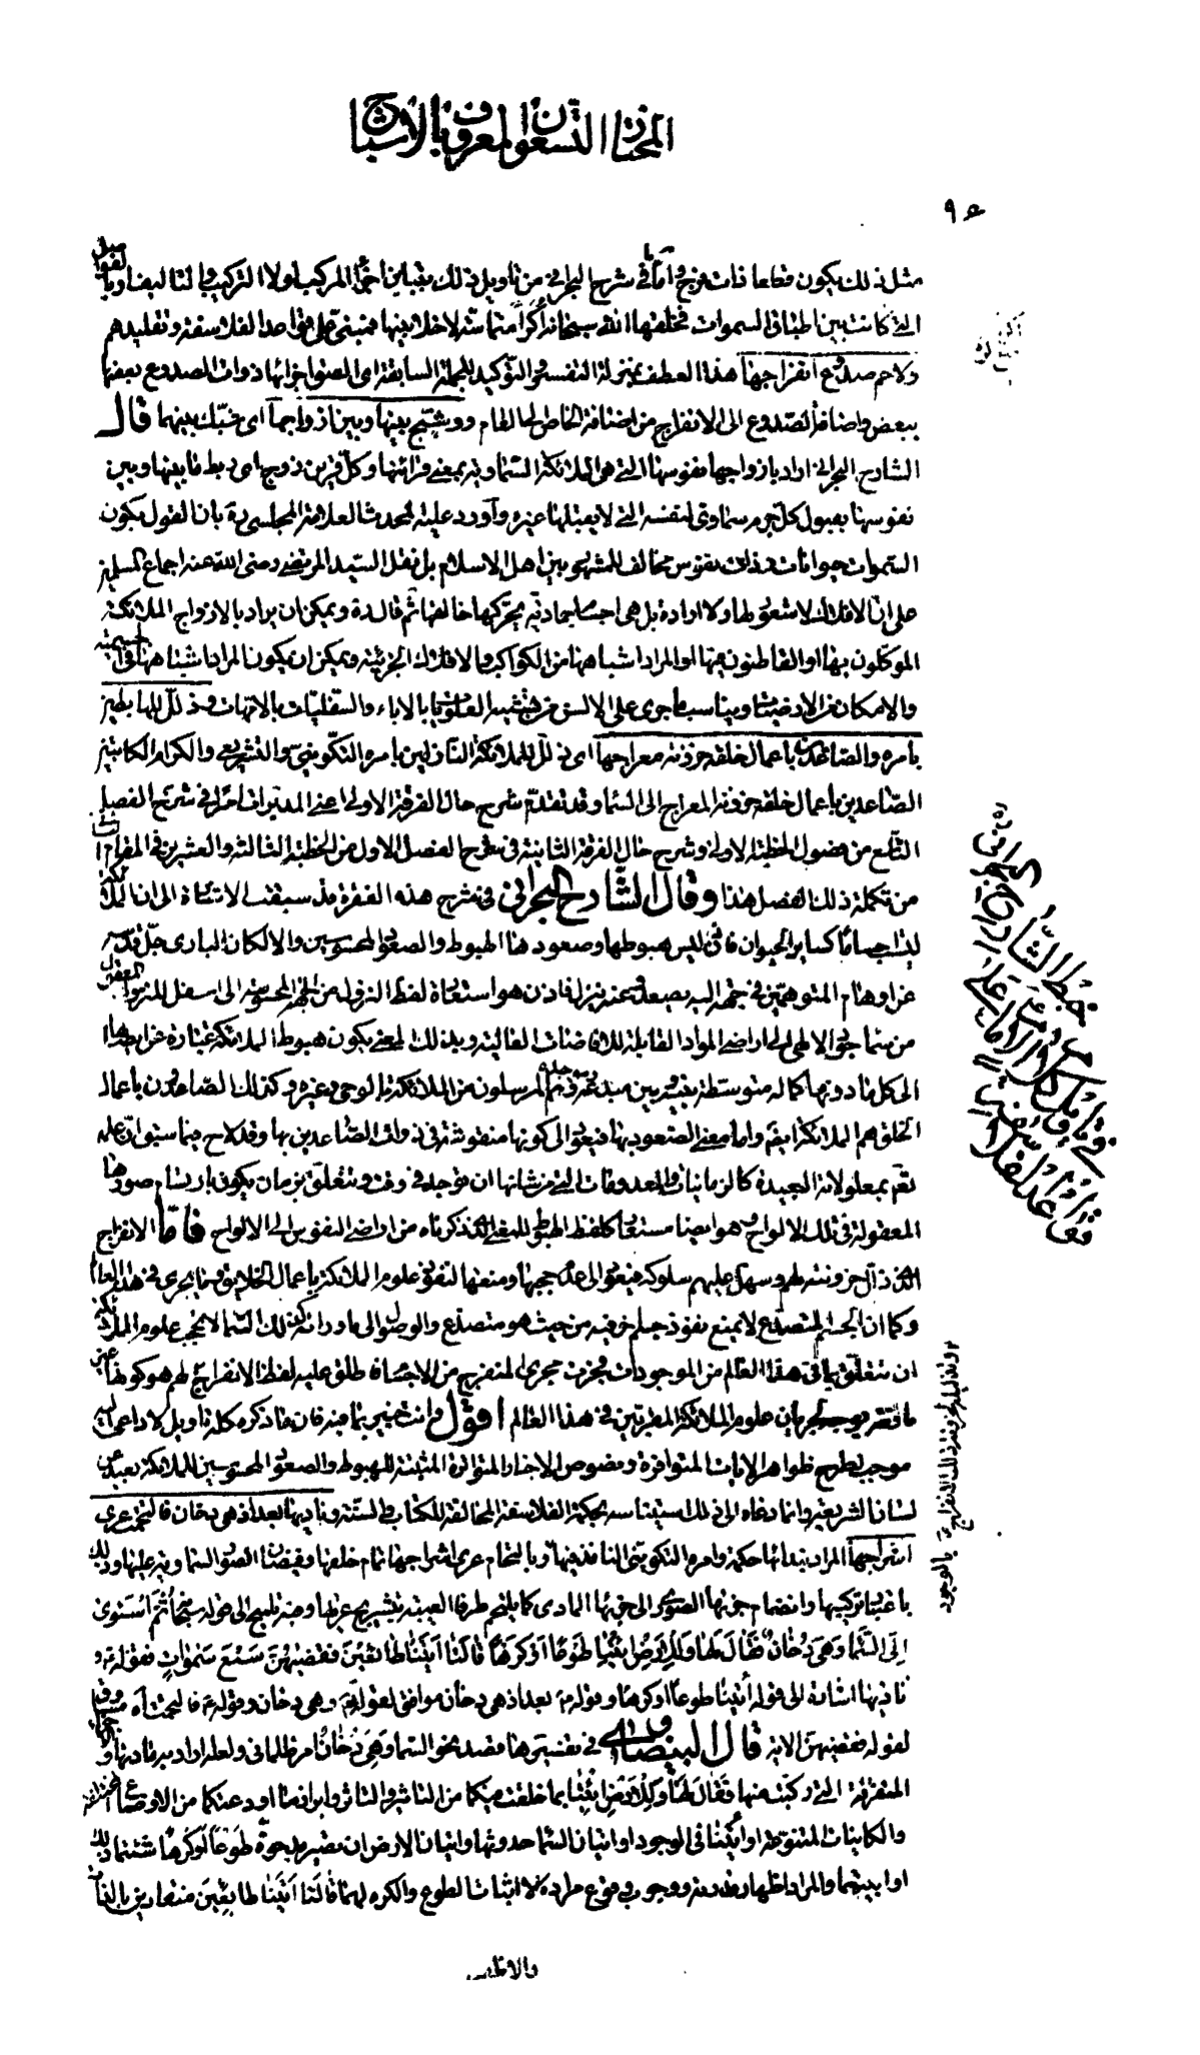 المختار التسعون المعروف بالاشباح
٩٥
مثل ذلك يكون قطعا ذات فرج واما ما في شرح البحراني من تاويل ذلك بتباين اجزاء المركب لولا التركيب والتاليف او بالفواصل
التي كانت بين اطباق السموات فخلقها الله سبحانه اكرا متماسة لا خلا بينها فمبنى على قواعد الفلاسفة وتقليدهم
ولاحم صدوع انفراجها هذا العطف بمنزلة التفسير والتوكيد للجملة السابقة اى الصق اجزائها ذوات الصدوع بعضها
ببعض واضافة الصدوع الى الانفراج من اضافة الخاص الى العام ووشج بينها وبين ازواجها اى شبك بينهما قال
الشارح البحراني اراد بازواجها نفوسها التي هي الملائكة السماوية بمعنى قرائنها وكل قرين زوج اى ربط ما بينها وبين
نفوسها بقبول كل جرم سماوى لنفسه التي لا يقبلها غيره وآورد عليه المحدث العلامة المجلسى ره بان القول بكون
السموات حيوانات وذات نفوس مخالف للمشهور بين اهل الاسلام بل نقل السيد المرتضى رضى الله عنه اجماع المسلمين
على ان الافلاك لا شعور لها ولا ارادة بل هي اجسام جمادية يحركها خالقها ثم قال ره ويمكن ان يراد بالازواج الملائكة
الموكلون بها او القاطنون فيها او المراد اشباهها من الكواكب والافلاك الجزئية ويمكن ان يكون المراد اشباهها في الجسمية
والامكان من الارضيات ويناسب ما جرى على الالسن من تشبيه العلويات بالاباء والسفليات بالامهات وذلل للهابطين
بامره والصاعدين باعمال خلقه حزونة معراجها اى ذلل للملائكة النازلين بامره التكوينى والتشريعي والكرام الكاتبين
الصاعدين باعمال خلقه حزونة المعراج الى السماء وقد تقدم شرح حال الفرقة الاولى اعنى المدبرات امرا في شرح الفصل
التاسع من فصول الخطبة الاولى وشرح حال الفرقة الثانية في شرح الفصل الاول من الخطبة الثالثة والعشرين في المقام الثاني
من تكملة ذلك الفصل هذا وقال الشارح البحراني في شرح هذه الفقرة قد سبقت الاشارة الى ان الملائكة
ليست اجساما كساير الحيوان فاذن ليس هبوطها وصعودها الهبوط والصعود المحسوسين والا لكان البارى جل قدسه
عن اوهام المتوهمين في جهة اليه يصعد وعنه ينزل فاذن هو استعارة لفظ النزول من الجهة المحسوسة الى اسفل للنزول العقلى
من سماء الجود الالهى الى اراضى المواد القابلة للافاضات العالية وبذلك المعنى يكون هبوط الملائكة عبارة عن ايصالها
الى كل ما دونها كماله متوسطة بينه وبين مبدعه وموجده وهم المرسلون من الملائكة بالوحى وغيره وكذلك الصاعدون باعمال
الخلق هم الملائكة ايضا واما معنى الصعود بها فيعود الى كونها منقوشة في ذوات الصاعدين بها وقد لاح فيما سبق ان علمه
تعم بمعلولاته البعيدة كالزمانيات والمعدومات التي من شانها ان توجد في وقت وتتعلق بزمان يكون بارتسام صورها
المعقولة في تلك الالواح وهو ايضا مستعار كلفظ الهبوط للمعنى الذى ذكرناه من اراضى النفوس الى الالواح فامّا الانفراج
الذى ذلل حزونته لهم وسهل عليهم سلوكه فيعود الى عدم حجبها ومنعها لنفوذ علوم الملائكة باعمال الخلايق وما يجرى في هذا العالم
وكما ان الجسم المتصدع لا يمنع نفوذ جسم آخر فيه من حيث هو متصدع والوصول الى ما ورائه كذلك السماء لا تحجب علوم الملائكة
ان تتعلق بما في هذا العالم من الموجودات فجرت مجرى المنفرج من الاجسام فاطلق عليه لفظ الانفراج
علوم الملائكة المقربين في هذا العالم اقول وانت خبير بما فيه فان ما ذكره كله تاويل لا داعى اليه
موجب لطرح ظواهر الايات المتوافرة ونصوص الاخبار المتواترة المثبتة للهبوط والصعود المحسوسين للملائكة بعيد عن
لسان الشريعة وانما دعاه الى ذلك استيناسه بحكمة الفلاسفة المخالفة للكتاب والسنة وناديها بعد اذ هي دخان فالتحمت عرى
اشراجها المراد بندائها حكمه وامره التكوينى النافذ فيها وبالتحام عرى اشراجها تمام خلقها وفيضان الصور السماوية عليها وذلك
باعتبار تركيبها وانضمام جزئها الصورى الى جزئها المادى كما يلتحم طرفا العيبة بتشريج عريها وفيه تلميح الى قوله سبحانه ثم استوى
إلى السماء وهي دخان فقال لها وللأرض ائتيا طوعا أو كرها قالتا أتينا طائعين فقضيهن سبع سموات فقوله ع و
ناديها اشارة الى قوله ائتيا طوعا او كرها وقوله بعد اذ هي دخان موافق لقوله وهي دخان وقوله فالتحمت اه مساوق
لقوله فقضيهن الاية قال البيضاوى في تفسيرها قصد نحو السماء وهي دخان امر ظلمانى ولعله اراد به مادتها او الاجزاء
المتفرقة التي ركبت منها فقال لها وللارض ائتيا بما خلقت فيكما من التاثير والتاثر وابرزا ما اودعتكما من الاوضاع المختلفة
والكاينات المتنوعة او ائتيا في الوجود او اتيان السماء حدوثها واتيان الارض ان تصير مدحوة طوعا او كرها شئتما ذلك
او ابيتما والمراد اظهار قدرته ووجوب وقوع مراده لا اثبات الطوع والكره لهما قالتا اتينا طايعين منقادين بالذات
والاظهر